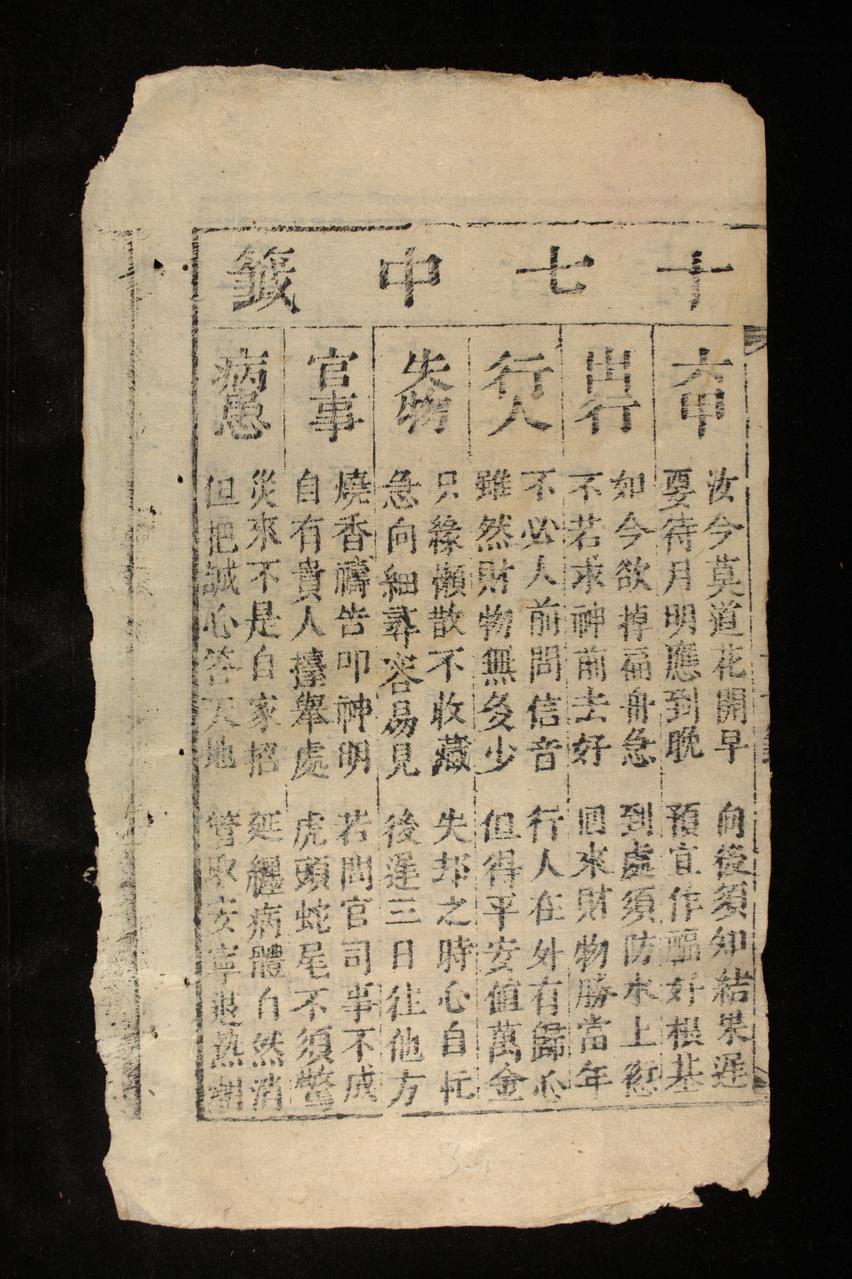 十七中籤
六甲
汝今莫道花開早 向後須知結果遲
要待月明應到晚 預宜作醞好根基
出行
如今欲掉福舟急 到處須防水上愆
不若求神前去好 囬來財物勝當年
行人
不必人前問信音 行人在外有歸心
雖然財物無多少 但得平安值萬金
失物
只緣懶散不收藏 失却之時心自忙
急向細尋容易見 後遲三日往他方
官事
燒香禱告叩神明 若問官司事不成
自有貴人擡舉處 虎頭蛇尾不須驚
病患
災來不是自家招 延纒病體自然消
但把誠心答天地 管取安寧退熱潮